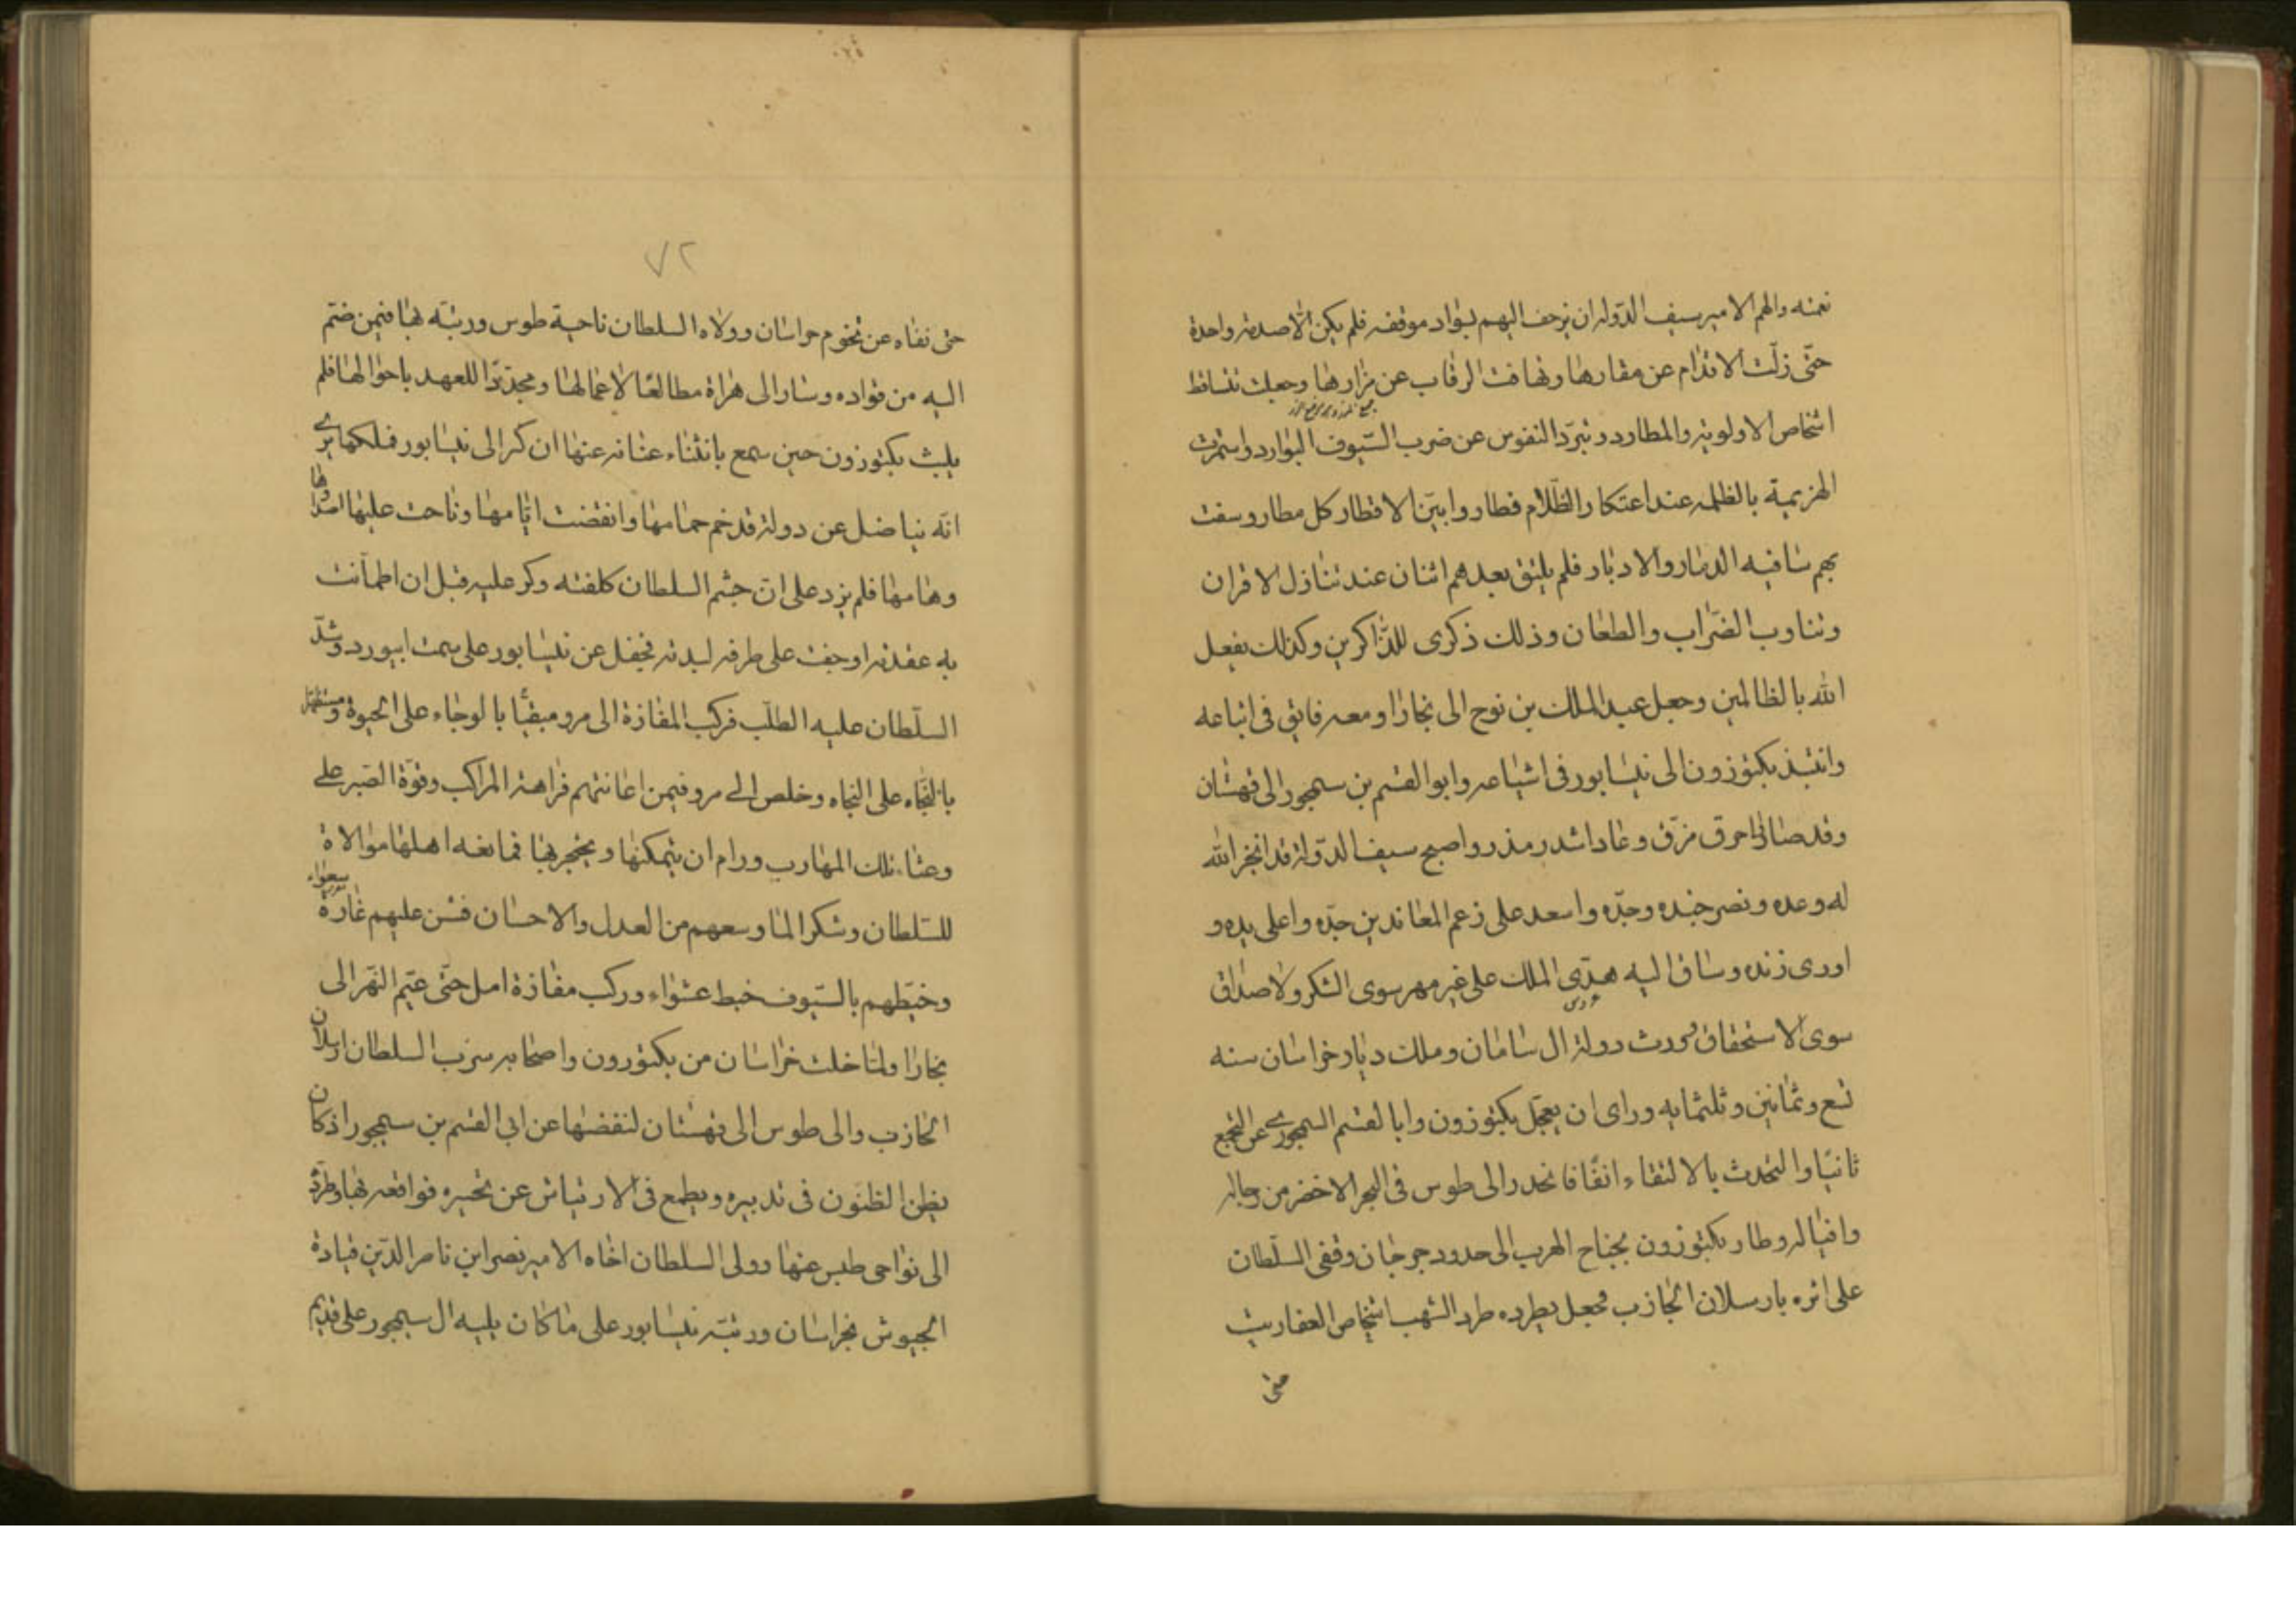 نعمته والهم الامير سيف الدوله ان يزحف اليهم بسواد موقفه فلم يكن الّا صدمة واحدة
حتّى زلّت الاقدام عن مقارها وتهافت الرقاب عن مزارها وجعلت تتساقط
اشخاص الاولوية والمطارد وتبرّد النفوس عن ضرب السّيوف البوارد واستمرت
الهزيمة بالظلمه عند اعتكار الظّلام فطاروا بين الاقطار كل مطار وسفت
بهم سافيه الدمار والادبار فلم يلتق بعدهم اثنان عند تنازل الاقران
وتناوب الضّراب والطعان وذلك ذكرى للذّاكرين وكذلك يفعل
الله بالظالمين وجعل عبد الملك بن نوح الى بخارا ومعه فايق فى اتباعه
وانتبذ بكتوزون الى نيسابور فى اشياعه وابو القسم بن سمجور الى قهستان
وقد صاروا حرق مزق وعاد اشدر مذر واصبح سيف الدّولة قد انجز الله
له وعده ونصر جنده وجدّه واسعد على زعم المعاندين جدّه واعلى يده و
اورى زنده وساق اليه هدّى الملك على غير مهر سوى الشكر ولا صداق
سوى الاستحقاق فورث دولة ال سامان وملك ديار خراسان سنه
تسع وثمانين وثلثمايه وراى ان يعجّل بكتوزون وابا القسم السمجورے عن التجمع
ثانيًا والتحدث بالالتقاء انفًا فانحدر الى طوس فى البحر الاخضر من رجاله
وافياله وطار بكتوزون بجناح الهرب الى حدود جرجان وقفى السلّطان
على اثره بارسلان الجاذب فجعل يطرده طرد الشهب اشخاص العفاريت
حتى
٧٢
حتى نفاه عن تخوم خراسان وولاه السلطان ناحية طوس ورتبّه بها فيمن ضمّ
اليه من قواده وسار الى هراة مطالعًا لاعمالها ومجدّدًا للعهد باحوالها فلم
يلبث بكتوزون حين سمع بانثناء عنانه عنها ان كر الى نيسابور فملكها يرے
انّه يناضل عن دولة قد خم حمامها وانقضت ايّامها وناحت عليها اصداوها
وهامها فلم يزد على ان جشم السلطان كلفته وكر عليه قبل ان اطمأنت
به عقدته اوجفت على طرفه لبدته فجفل عن نيسابور على سمت ابيورد وشدّ
السلّطان عليه الطلب فركب المفازة الى مرو مبقيًّا بالوجاء على الحيوة ومستظهرًا
بالنّجاه على النجاه وخلص الے مرو فيمن اعانتهم فراهة المراكب وقوّة الصّبر علے
وعثاء تلك المهارب ورام ان يتمكنها ويتحجر بها فمانعه اهلها موالاة
للسّلطان وشكرا لما وسعهم من العدل والاحسان فشن عليهم غارة شعواء
وخبّطهم بالسّيوف خبط عشواء وركب مفازة امل حتّى عبّر النّهر الى
بخارا ولمّا خلت خراسان من بكتوزون واصحابه سرّب السلطان ارسلان
الجاذب والى طوس الى قهستان لنفضها عن ابي القسم بن سمجور اذ كان
يظن الظنون فى تدبيره ويطمع فى الارتياش عن تحيره فواقعه بها وطرّد
الى نواحى طبس عنها وولى السلطان اخاه الامير نصر ابن ناصر الدّين قيادة
الجيوش بخراسان ورتبّه نيسابور على ماكان يليه ال سيمجور على قديم